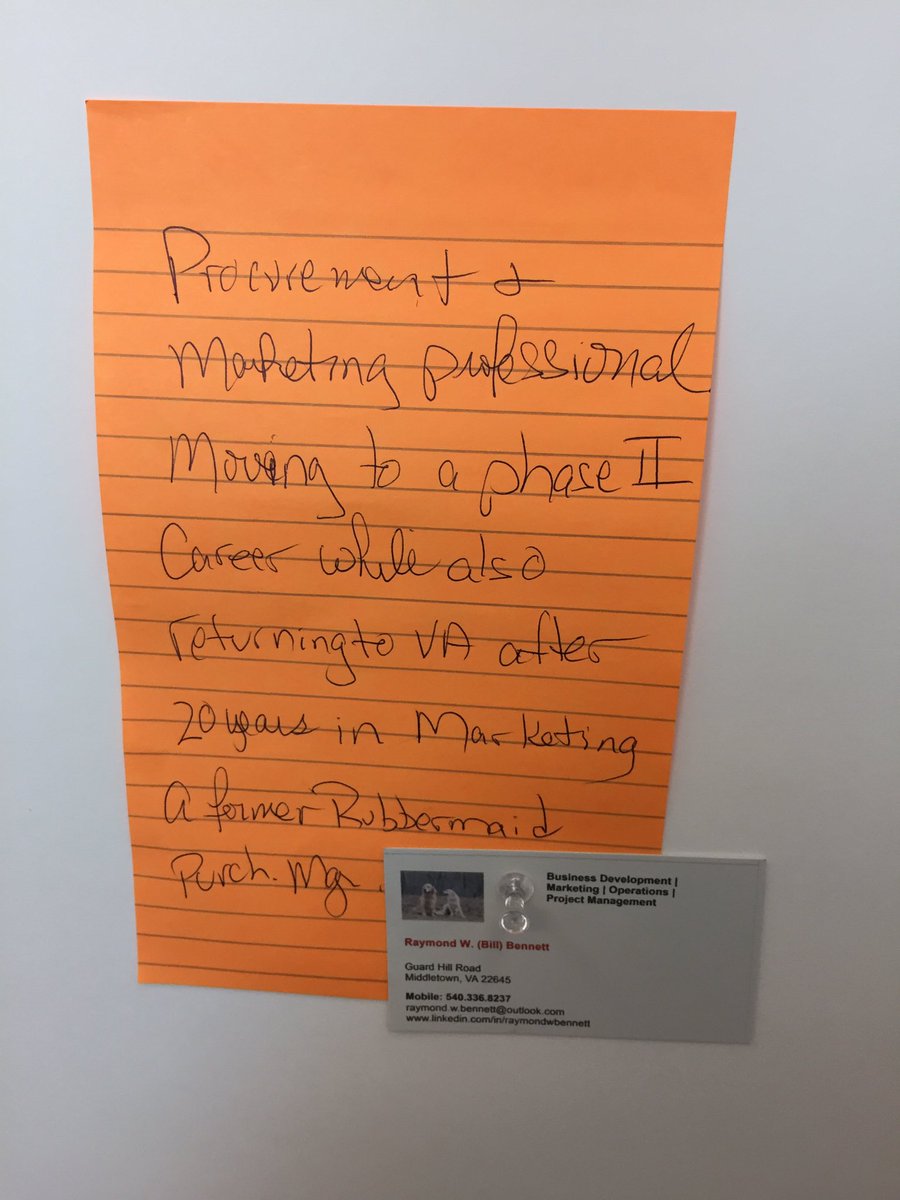 Procurement &
Marketing professional
Moving to a phase II
Career while also
returning to VA after
20 years in Marketing
A former Rubbermaid
Purch. Mgr.
Business Development |
Marketing | Operations |
Project Management
Raymond W. (Bill) Bennett
Guard Hill Road
Middletown, VA 22645
Mobile: 540.336.8237
raymond.w.bennett@outlook.com
www.linkedin.com/in/raymondwbennett